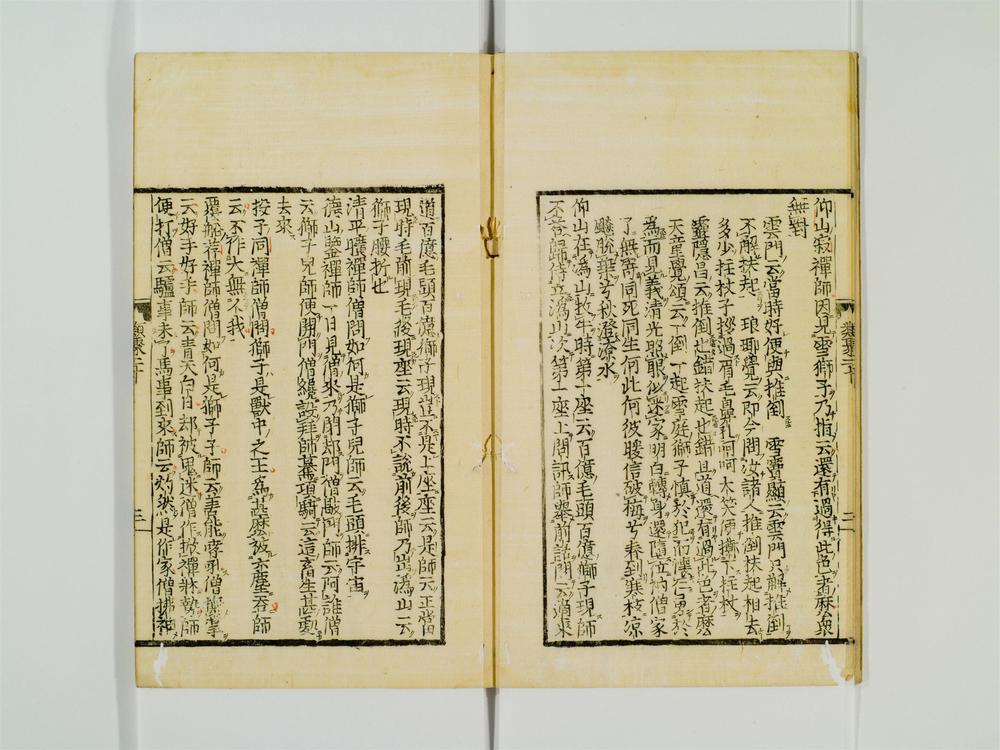 仰山寂禪師因見雪獅子乃指云還有過得此色者麼衆
無對
雲門云當時好便與推倒　雪竇顯云雲門只解推倒
不解扶起　琅瑘覺云即今問汝諸人推倒扶起相去
多少拄杖子拶過眉毛鼻孔呵呵大笑便擲下拄杖
靈隱昌云推倒也錯扶起也錯且道還有過此色者麼
天童覺頌云一倒一起雪庭獅子慎於犯而懷仁勇於
為而見義清光照眼似迷家明白轉身還墮位衲僧家
了無寄同死同生何此何彼暖信破梅兮春到寒枝凉
飈脫葉兮秋澄潦水
仰山在溈山牧牛時第一座云百億毛頭百億獅子現師
不答歸侍立溈山次第一座上問訊師舉前話問云適來
道百億毛頭百億獅子現豈不是上座座云是師云正當
現時毛前現毛後現座云現時不說前後師乃出溈山云
獅子腰折也
清平曠禪師僧問如何是獅子兒師云毛頭排宇宙
德山鑒禪師一日見僧來乃閉却門僧敲門師云阿誰僧
云獅子兒師便開門僧纔設拜師驀項騎云這畜生甚處
去來
投子同禪師僧問獅子是獸中之王為甚麼被六塵吞師
云不作大無人我
覆船荐禪師僧問如何是獅子子師云善能哮吼僧撫掌
云好手好手師云青天白日却被鬼迷僧作掀禪牀勢師
便打僧云驢事未了馬事到來師云灼然是作家僧拂袖
類聚二十
二
類聚二十
三